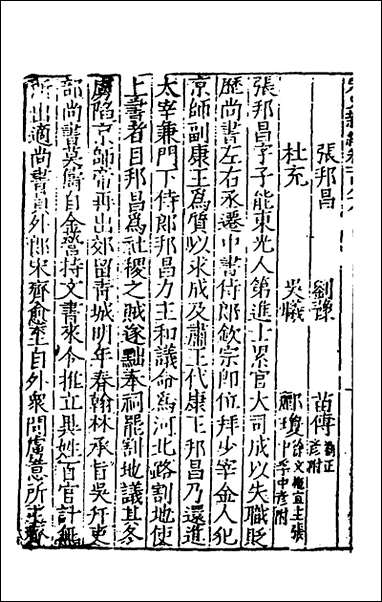 宋史新編卷一百八十
張邦昌 劉豫 苗傅 劉正彥附
杜充 吳曦 酈瓊 徐文 施宜生 張中孚 中彥附
張邦昌字子能東光人第進士累官大司成以失職貶
歷尚書左右丞遷中書侍郎欽宗即位拜少宰金人犯
京師副康王為質以求成及肅王代康王邦昌乃還進
太宰兼門下侍郎邦昌力主和議命為河北路割地使
上書者目邦昌為社稷之賊遂黜奉祠罷割地議其冬
虜陷京師帝再出郊留青城明年春翰林承旨吳幵吏
部尚書莫儔自金營持文書來令推立異姓百官計無
所出適尚書員外郎宋齊愈至自外眾問虜意所主齊